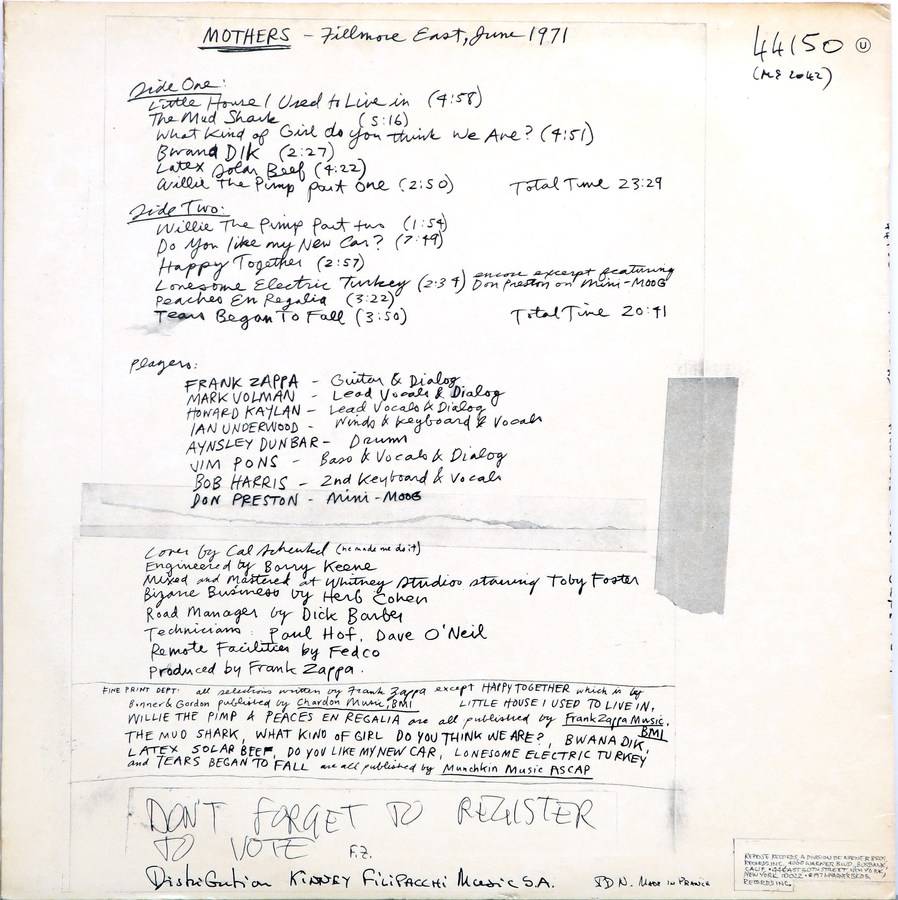 MOTHERS - Fillmore East, June 1971
44150 U
(MS 2042)
Side One:
Little House I Used to Live in (4:58)
The Mud Shark (5:16)
What Kind of Girl do you think We Are? (4:51)
Bwana DIK (2:27)
Latex Solar Beef (4:22)
Willie The Pimp part One (2:50) Total Time 23:29
Side Two:
Willie The Pimp Part two (1:54)
Do You like my New Car? (7:49)
Happy Together (2:57)
Lonesome Electric Turkey (2:34) encore excerpt featuring
Don Preston on Mini-MOOG
Peaches En Regalia (3:22)
Tears Began To Fall (3:50) Total Time 20:41
Players:
FRANK ZAPPA - Guitar & Dialog
MARK VOLMAN - Lead Vocals & Dialog
HOWARD KAYLAN - Lead Vocals & Dialog
IAN UNDERWOOD - Winds & Keyboard & Vocals
AYNSLEY DUNBAR - Drums
JIM PONS - Bass & Vocals & Dialog
BOB HARRIS - 2nd Keyboard & Vocals
DON PRESTON - Mini-MOOG
Cover by Cal Schenkel (he made me do it)
Engineered by Barry Keene
Mixed and Mastered at Whitney Studios starring Toby Foster
Bizarre Business by Herb Cohen
Road Manager by Dick Barber
Technicians: Paul Hof, Dave O'Neil
Remote Facilities by Fedco
Produced by Frank Zappa.
FINE PRINT DEPT: all selections written by Frank Zappa except HAPPY TOGETHER which is by
Bonner & Gordon published by Chardon Music, BMI LITTLE HOUSE I USED TO LIVE IN,
WILLIE THE PIMP & PEACES EN REGALIA are all published by Frank Zappa Music,
BMI
THE MUD SHARK, WHAT KIND OF GIRL DO YOU THINK WE ARE?, BWANA DIK,
LATEX SOLAR BEEF, DO YOU LIKE MY NEW CAR, LONESOME ELECTRIC TURKEY
and TEARS BEGAN TO FALL are all published by Munchkin Music ASCAP
DON'T FORGET TO REGISTER
TO VOTE F.Z.
Distribution KINNEY FILIPACCHI Music S.A. IDN. Made in France
REPRISE RECORDS, A DIVISION OF WARNER BROS.
RECORDS INC. 4000 WARNER BLVD., BURBANK,
CALIF. • 44 EAST 50TH STREET, NEW YORK,
NEW YORK 10022 • © 1971 WARNER BROS.
RECORDS INC.